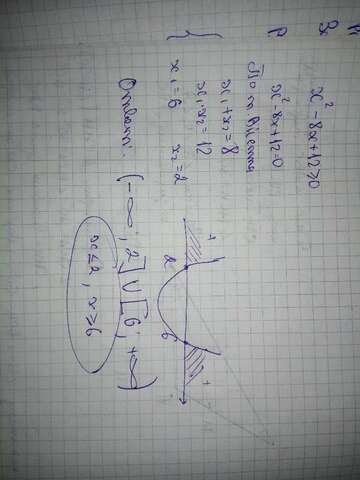 x² - 8x + 12 ≥ 0
x² - 8x + 12 = 0
По т. Виета
x₁ + x₂ = 8
x₁ · x₂ = 12
x₁ = 6 x₂ = 2
+ 2 6 +
(-∞; 2] ∪ [6; +∞)
x ≤ 2, x ≥ 6